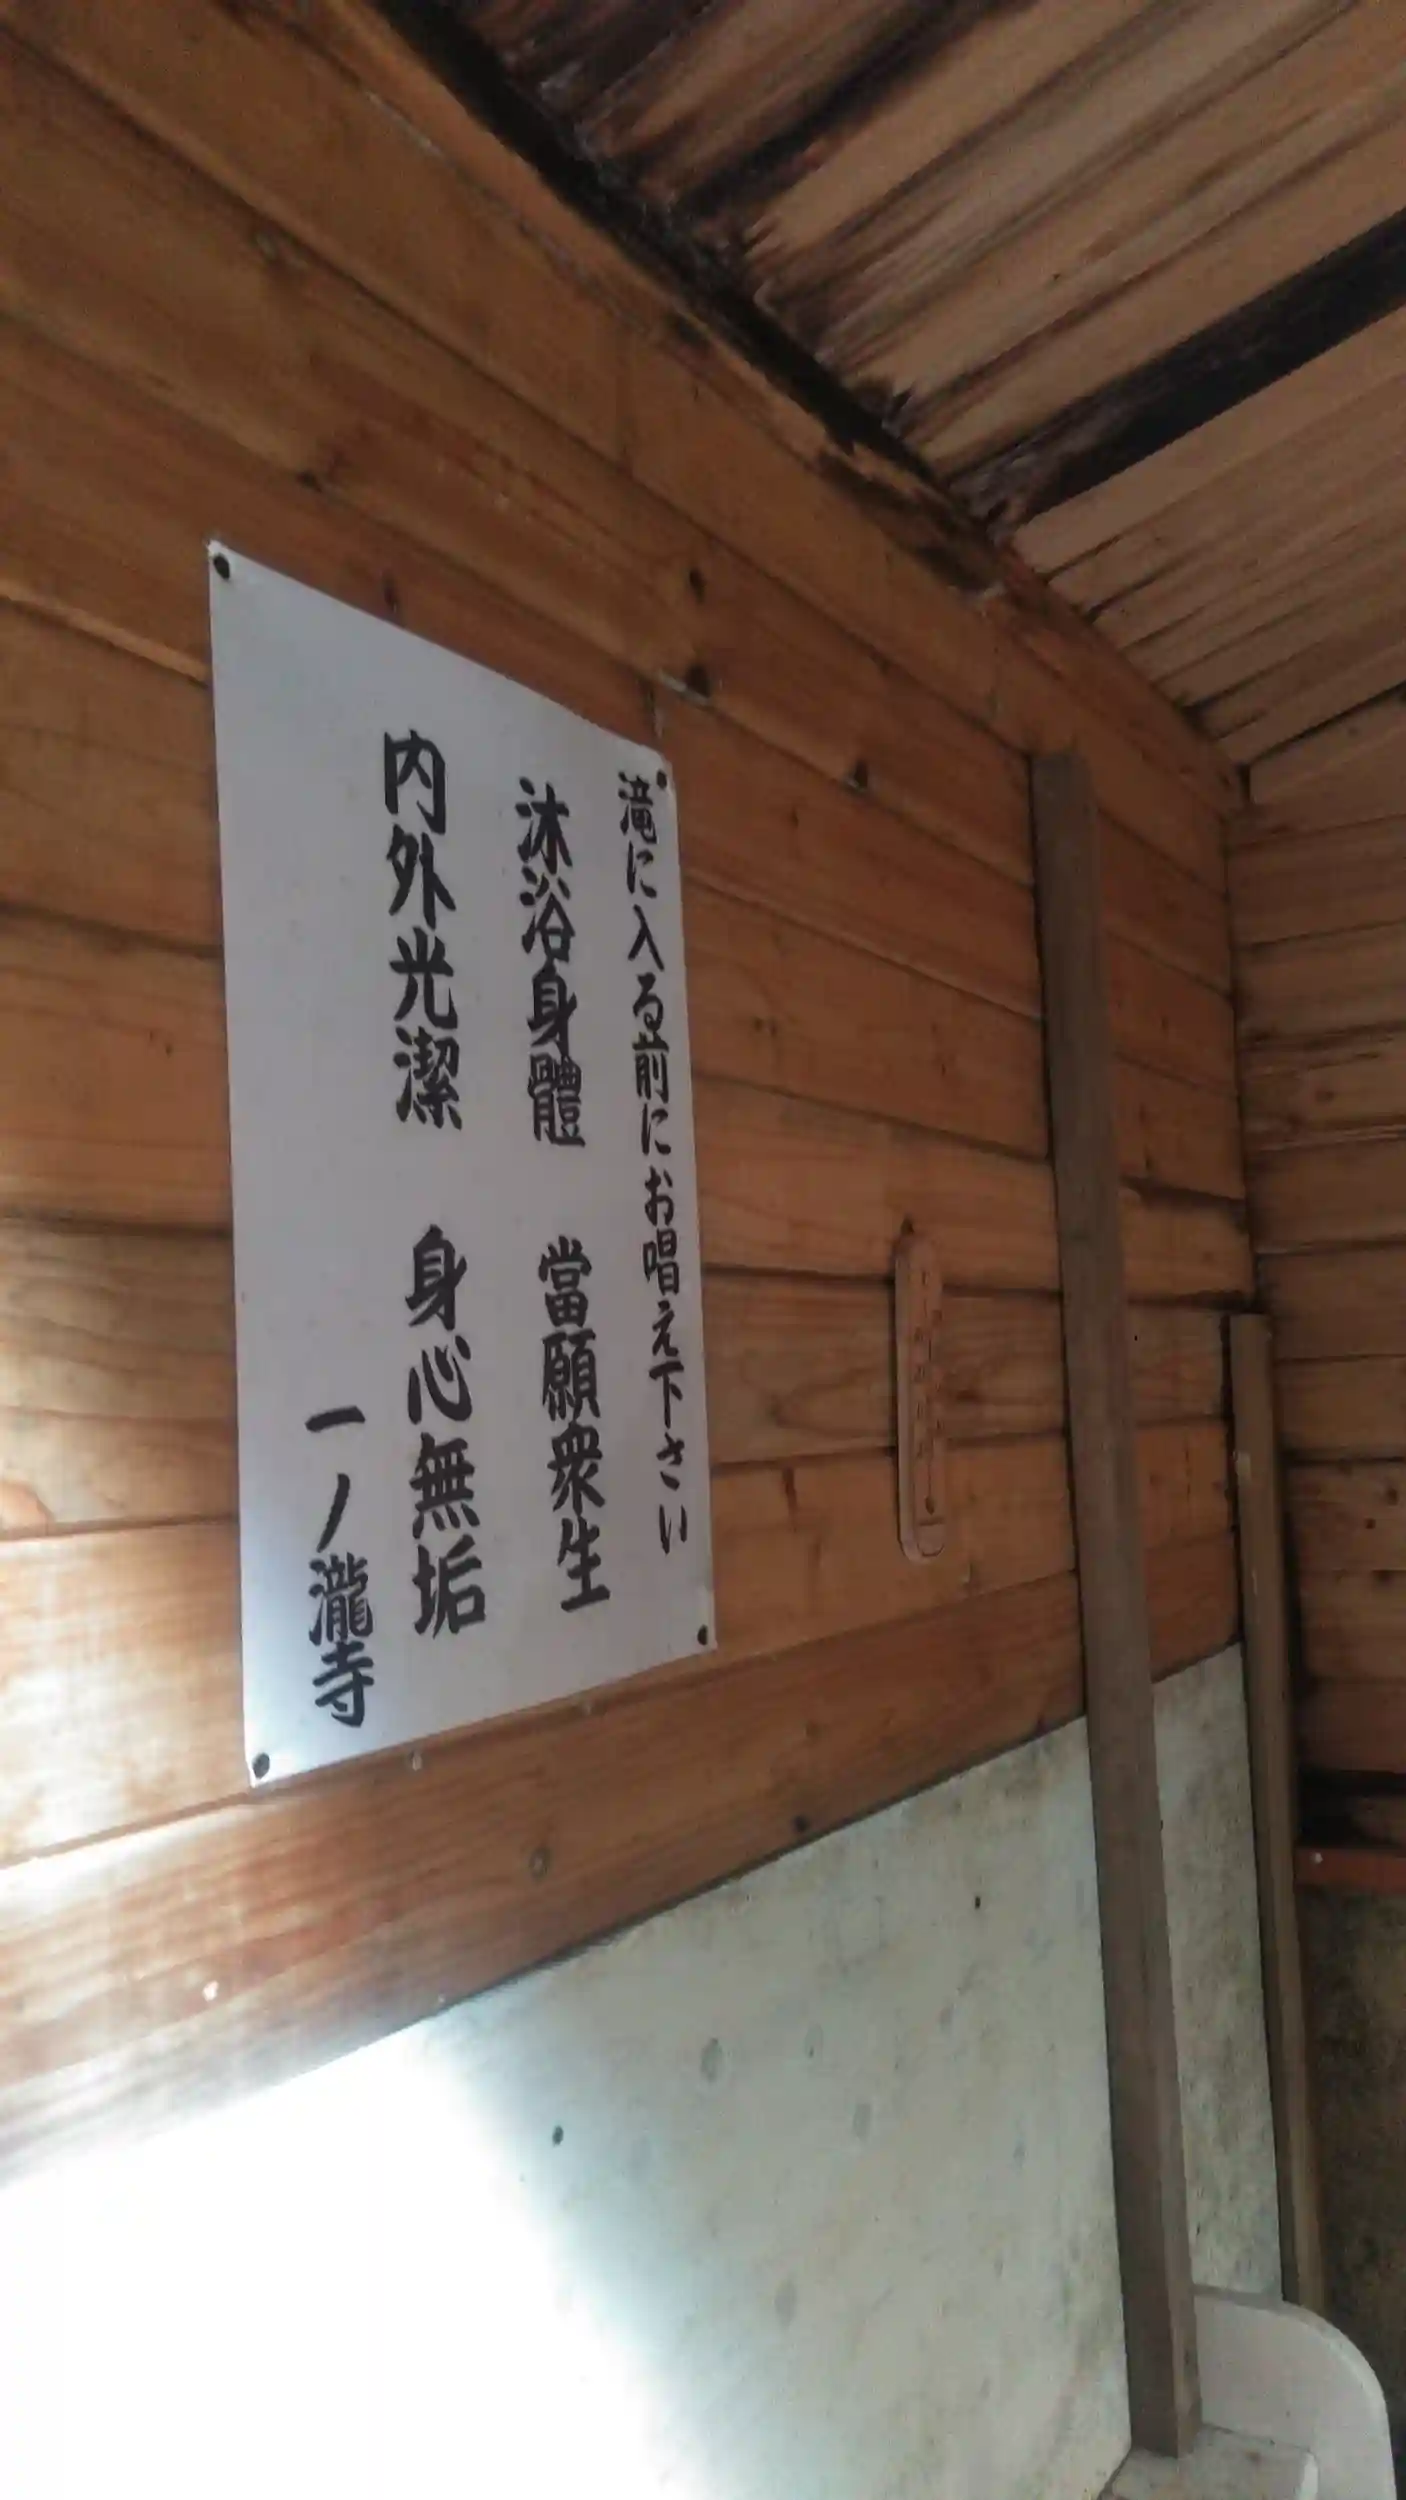 滝に入る前にお唱え下さい
沐浴身體 當願衆生
内外光潔 身心無垢
一ノ瀧寺